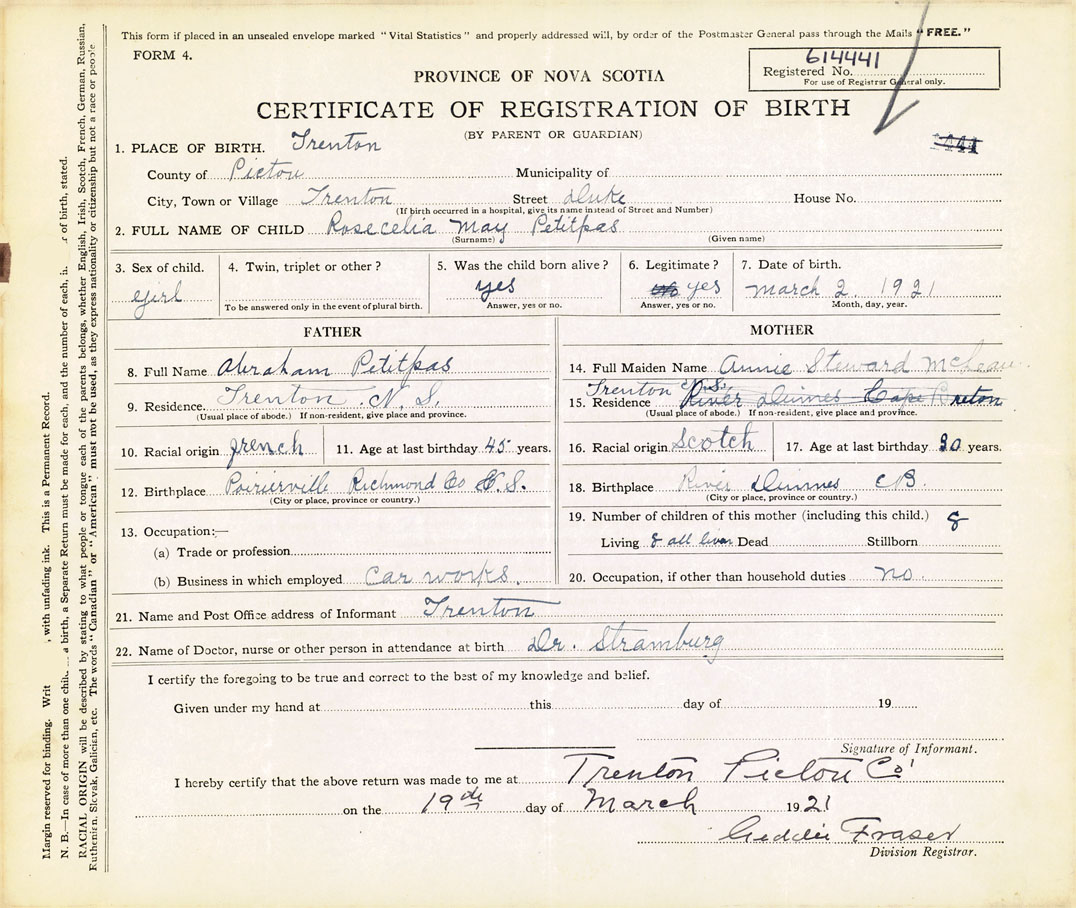 This form if placed in an unsealed envelope marked "Vital Statistics" and properly addressed will, by order of the Postmaster General pass through the Mails "FREE."
FORM 4.
614441
Registered No.
For use of Registrar General only.
PROVINCE OF NOVA SCOTIA
CERTIFICATE OF REGISTRATION OF BIRTH
(BY PARENT OR GUARDIAN)
1. PLACE OF BIRTH. Trenton
County of Pictou Municipality of
City, Town or Village Trenton Street Duke House No.
(If birth occurred in a hospital, give its name instead of Street and Number)
2. FULL NAME OF CHILD Rosecelia May Petitpas
(Surname) (Given name)
3. Sex of child. 4. Twin, triplet or other? 5. Was the child born alive? 6. Legitimate? 7. Date of birth.
girl yes yes March 2. 1921
To be answered only in the event of plural birth. Answer, yes or no. Answer, yes or no. Month, day, year.
FATHER
8. Full Name Abraham Petitpas
9. Residence. Trenton N. S.
(Usual place of abode.) If non-resident, give place and province.
10. Racial origin french 11. Age at last birthday 45 years.
12. Birthplace Poirierville Richmond Co N.S.
(City or place, province or country.)
13. Occupation:—
(a) Trade or profession
(b) Business in which employed Car works.
MOTHER
14. Full Maiden Name Annie Steward McLean
Trenton N.S.
15. Residence River Dinnes Cape Breton
(Usual place of abode.) If non-resident, give place and province.
16. Racial origin Scotch 17. Age at last birthday 30 years.
18. Birthplace River Dinnes CB.
(City or place, province or country.)
19. Number of children of this mother (including this child.) 8
Living 8 all liven Dead Stillborn
20. Occupation, if other than household duties no.
21. Name and Post Office address of Informant Trenton
22. Name of Doctor, nurse or other person in attendance at birth Dr. Stramburg
I certify the foregoing to be true and correct to the best of my knowledge and belief.
Given under my hand at this day of 19
Signature of Informant.
I hereby certify that the above return was made to me at Trenton Pictou Co'
on the 19th day of March 1921
Geddie Fraser
Division Registrar.
Margin reserved for binding. Writ , with unfading ink. This is a Permanent Record.
N. B.—In case of more than one chil a birth, a Separate Return must be made for each, and the number of each, i of birth, stated.
RACIAL ORIGIN will be described by stating to what people or tongue each of the parents belongs, whether English, Irish, Scotch, French, German, Russian,
Ruthenian, Slovak, Galician, etc. The words "Canadian" or "American" must not be used, as they express nationality or citizenship but not a race or people